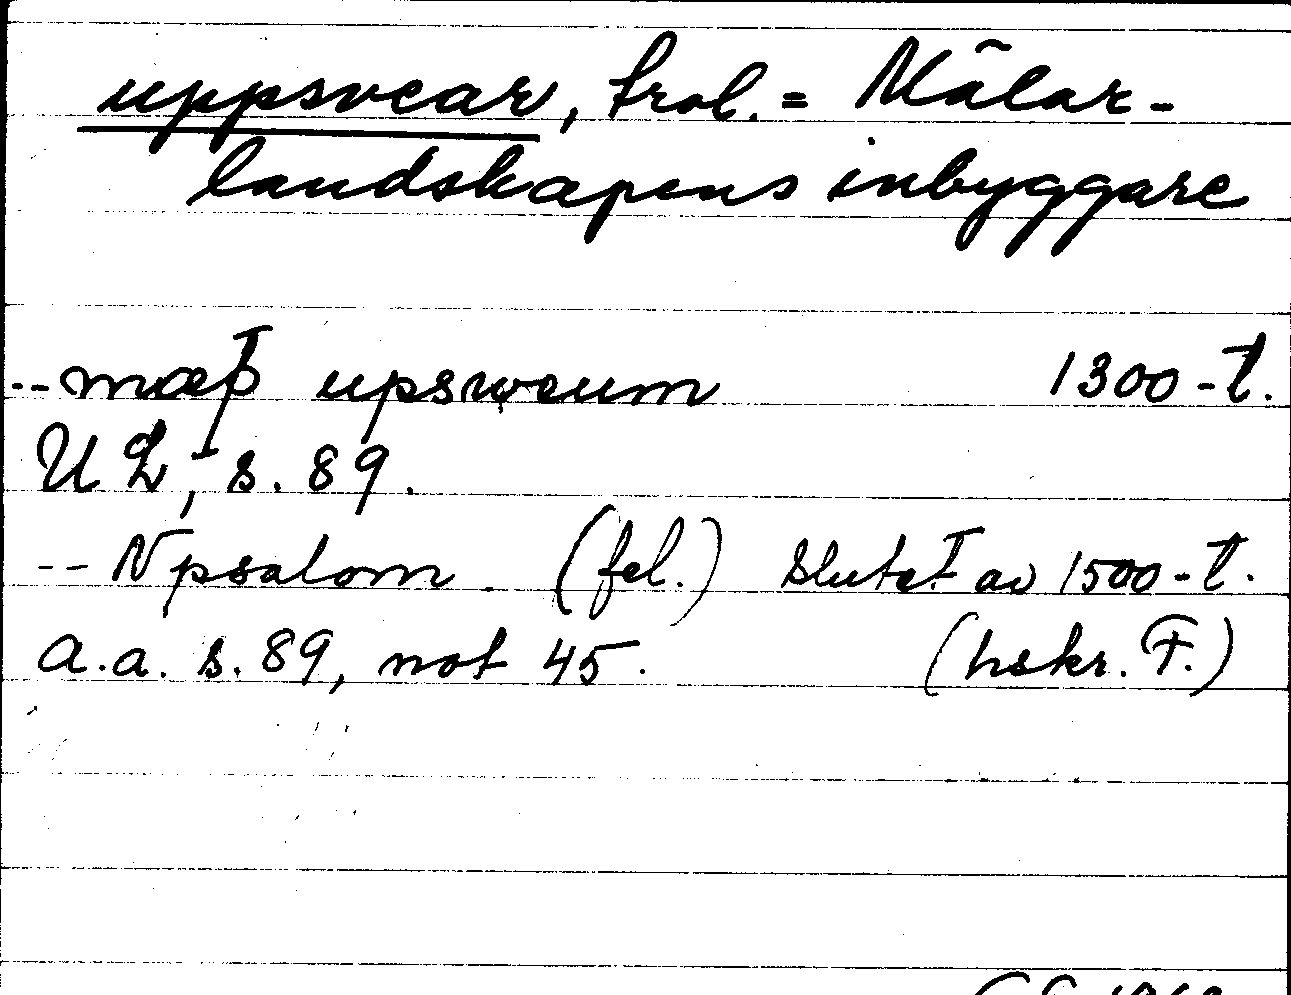 uppsvear, trol. = Mälar-
landskapens inbyggare
--mæþ upsweum 1300-t.
UL, s. 89.
-- Vpsalom (fel.) Slutet av 1500-t.
a.a. s. 89, not 45. (hskr. F.)